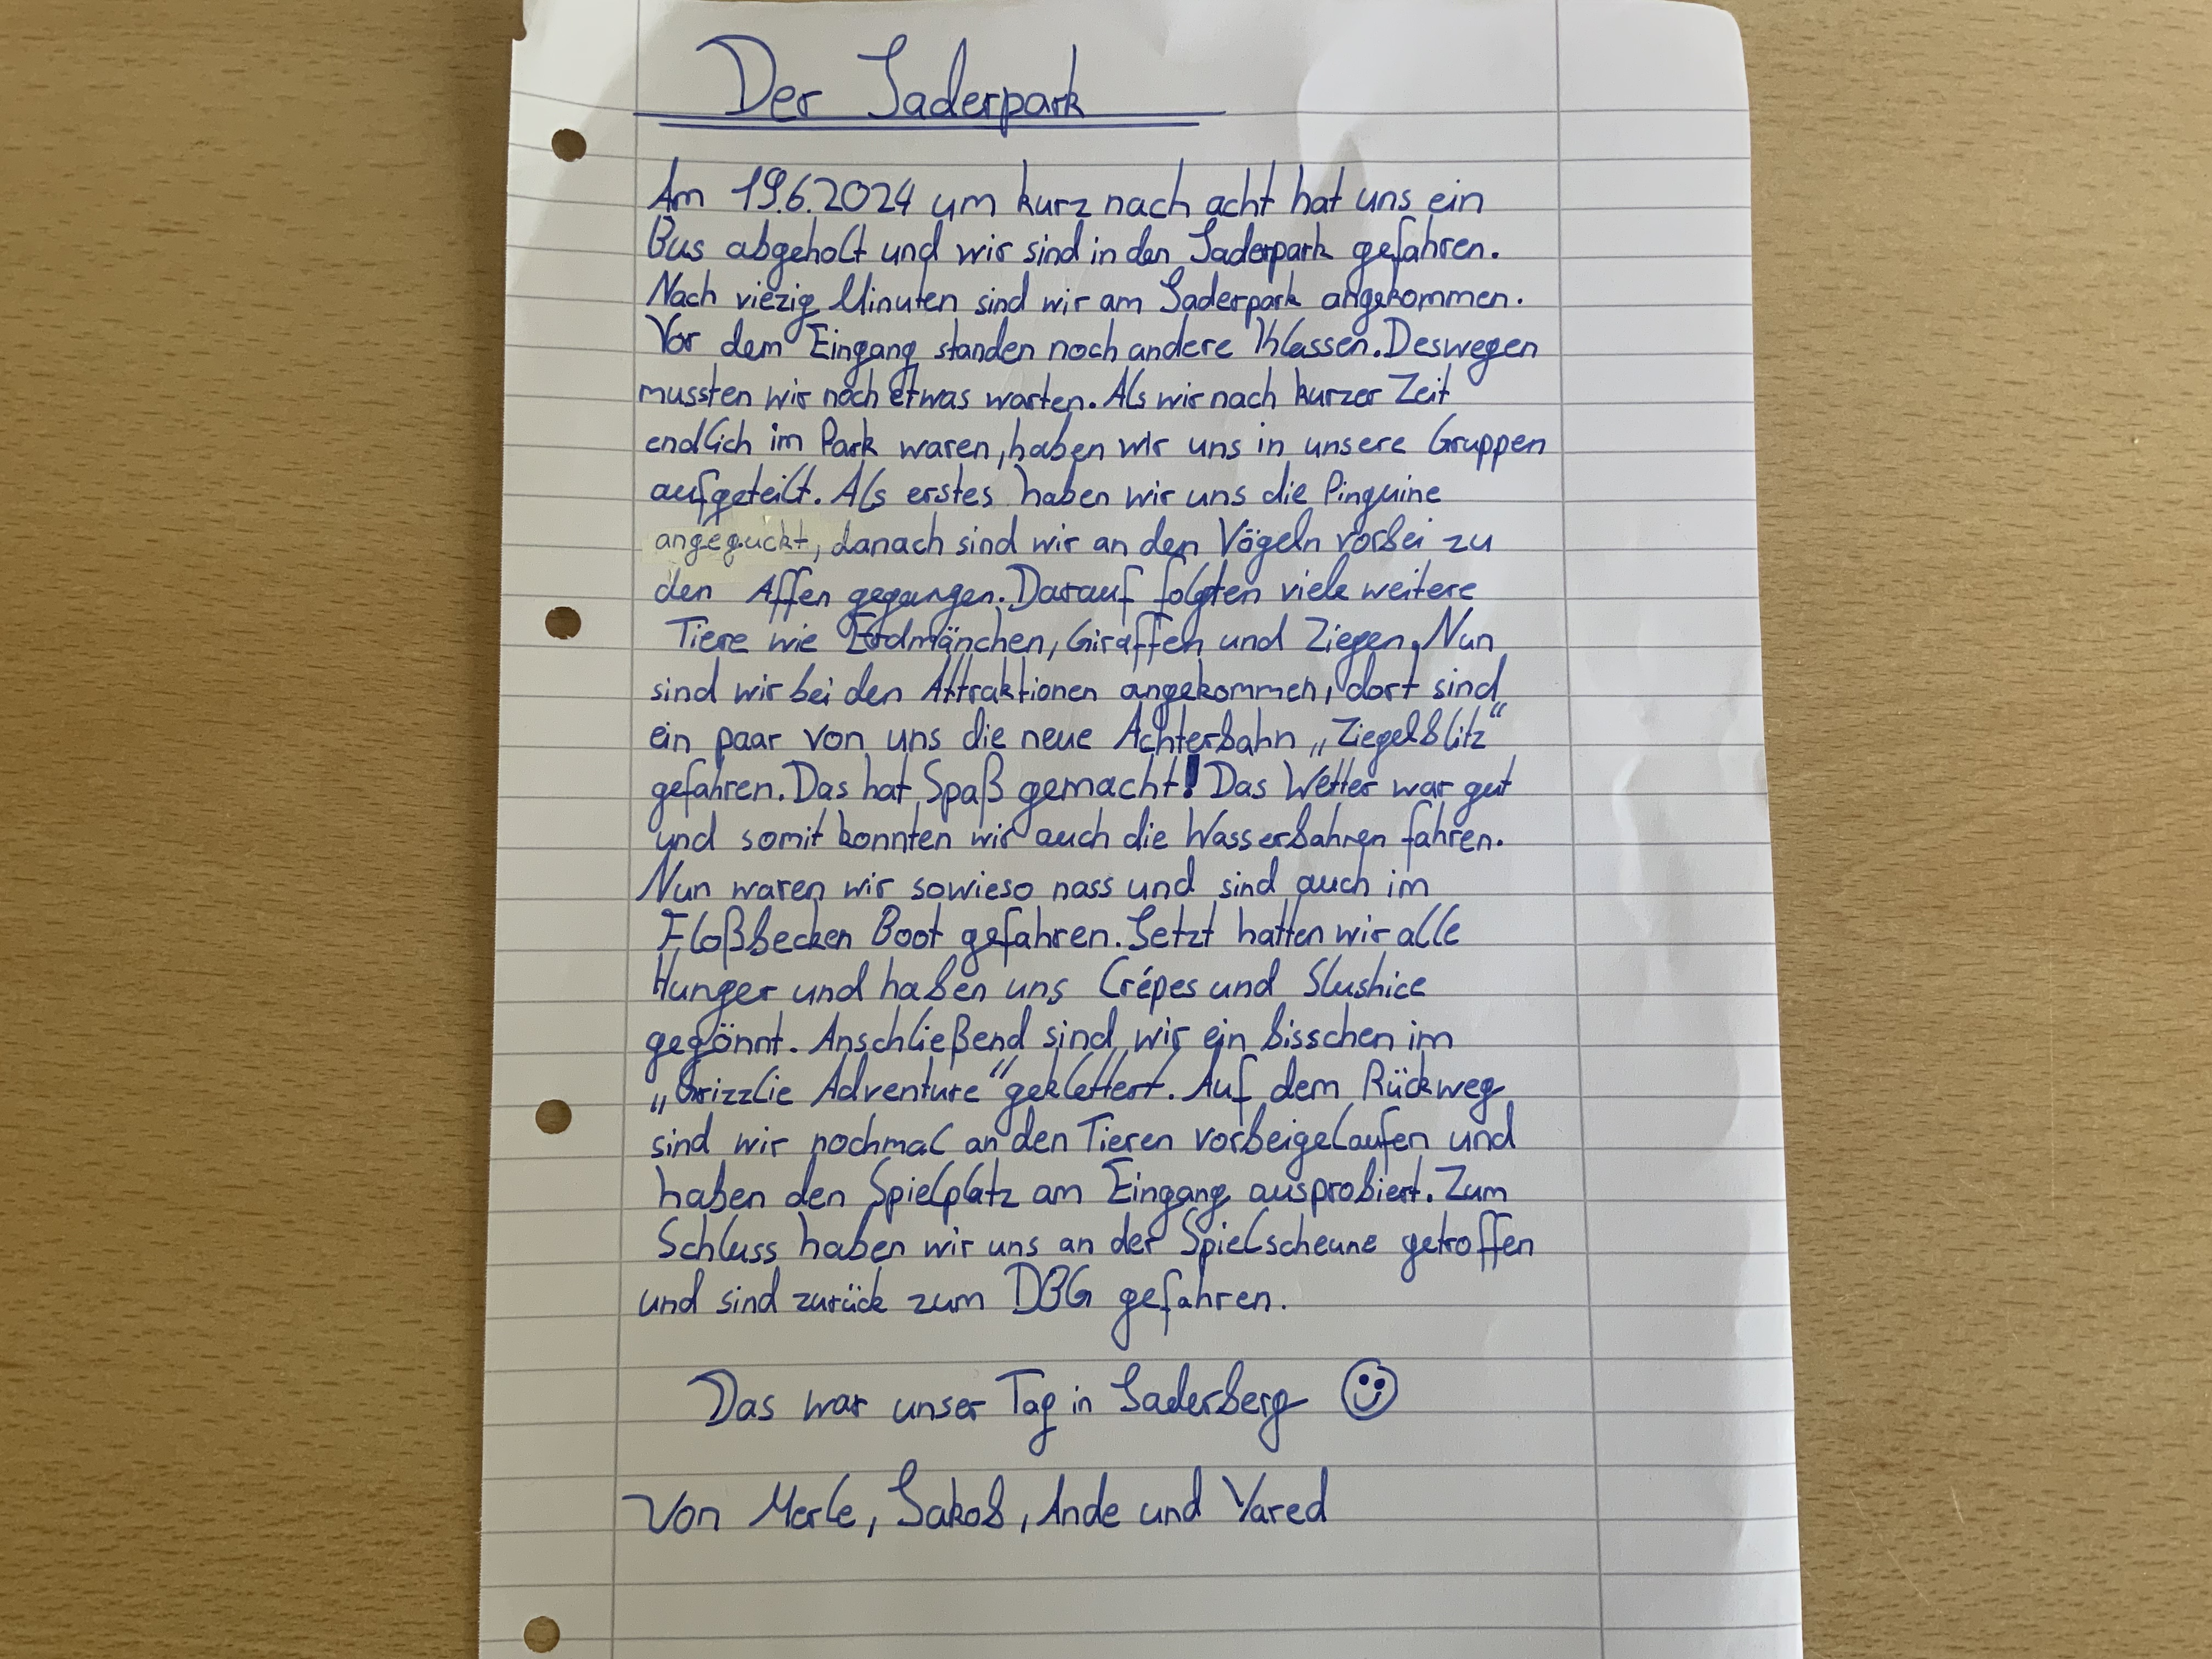 Der Jaderpark
Am 19.6.2024 um kurz nach acht hat uns ein
Bus abgeholt und wir sind in den Jaderpark gefahren.
Nach viezig Minuten sind wir am Jaderpark angekommen.
Vor dem Eingang standen noch andere Klassen. Deswegen
mussten wir noch etwas warten. Als wir nach kurzer Zeit
endlich im Park waren, haben wir uns in unsere Gruppen
aufgeteilt. Als erstes haben wir uns die Pinguine
angeguckt, danach sind wir an den Vögeln vorbei zu
den Affen gegangen. Darauf folgten viele weitere
Tiere wie Erdmänchen, Giraffen und Ziegen. Nun
sind wir bei den Attraktionen angekommen, dort sind
ein paar von uns die neue Achterbahn „Ziegelblitz“
gefahren. Das hat Spaß gemacht! Das Wetter war gut
und somit konnten wir auch die Wasserbahnen fahren.
Nun waren wir sowieso nass und sind auch im
Floßbecken Boot gefahren. Jetzt hatten wir alle
Hunger und haben uns Crépes und Slushice
gegönnt. Anschließend sind wir ein bisschen im
„Grizzlie Adventure“ geklettert. Auf dem Rückweg
sind wir nochmal an den Tieren vorbeigelaufen und
haben den Spielplatz am Eingang ausprobiert. Zum
Schluss haben wir uns an der Spielscheune getroffen
und sind zurück zum DBG gefahren.
Das war unser Tag in Jaderberg ☺
Von Merle, Jakob, Ande und Yared